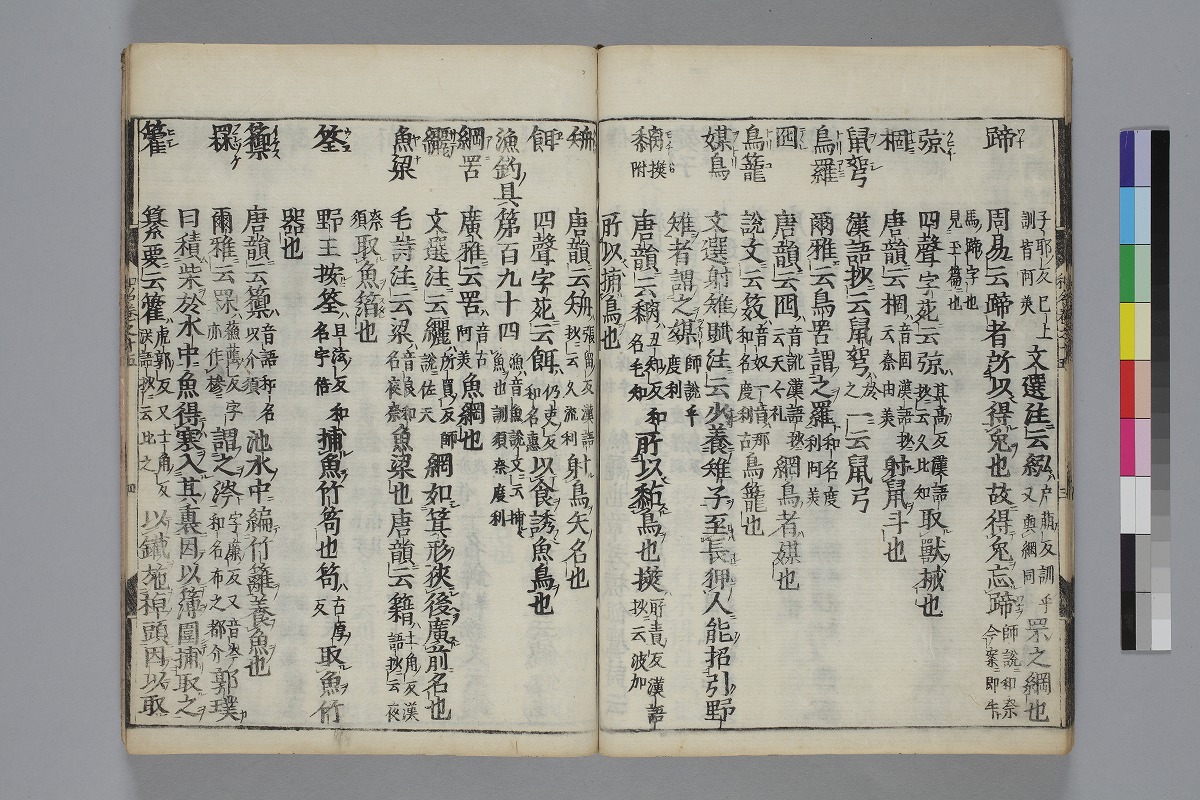 子耶反已上訓皆阿美 文選注云紭戸萌反訓乎又與網同罘之綱也
蹄 周易云蹄者所以得兎也故得兎忘蹄師説和奈今案即牛馬蹄字也見于牛馬篇也
弶 四聲字苑云弶其高反漢語抄云久比知取獸械也
棝 唐韻云棝音固漢語抄云奈由美射鼠斗也
鼠弩 漢語抄云鼠弩於之一云鼠弓
鳥羅 爾雅云鳥罟謂之羅和名度利阿美
囮 唐韻云囮音訛漢語抄云天々礼網鳥者媒也
鳥籠 説文云笯音奴一音那和名度利古鳥籠也
媒鳥 文選射雉賦注云少養雉子至長狎人能招引野
雉者謂之媒師説乎度利
黐擌附 唐韻云黐丑知反和名毛知所以黏鳥也擌所責反漢語抄云波加
所以捕鳥也
唐韻云 張留反漢語抄云久流利 射鳥矢名也
餌 四聲字苑云餌仍吏反和名惠以食誘魚鳥也
漁釣具第百九十四漁音魚説文云捕魚也訓須奈度利
網罟 廣雅云罟音古阿美魚網也
纚 文選注云纚所買反師説佐天網如箕形狹後廣前名也
魚梁 毛詩注云梁音良和名夜奈魚梁也唐韻云籍士角反漢語抄云夜奈須取魚箔也
筌 野王按筌且泫反和名宇倍捕魚竹笱也笱古厚反取魚竹
器也
籞 唐韻云籞音語和名以介須池水中編竹籬養魚也
罧 爾雅云罧蘇蔭反字亦作槮謂之涔字廉反又音岑和名布之都介郭璞
曰積柴於水中魚得寒入其裏因以簿圍捕取之
籗 纂要云籗虎郭反又士角反漢語抄云比之以鐵施棹頭因以取